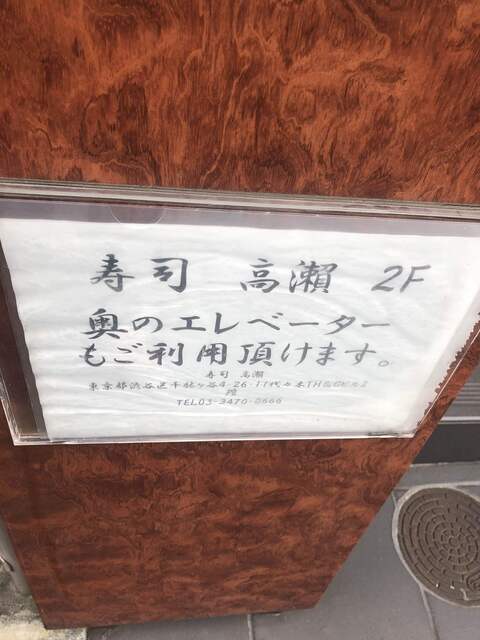 寿司 高瀬 2F
奥のエレベーター
もご利用頂けます。
寿司 高瀬
東京都渋谷区千駄ヶ谷4-26-11代々木TH
階
TEL03-3470-0666